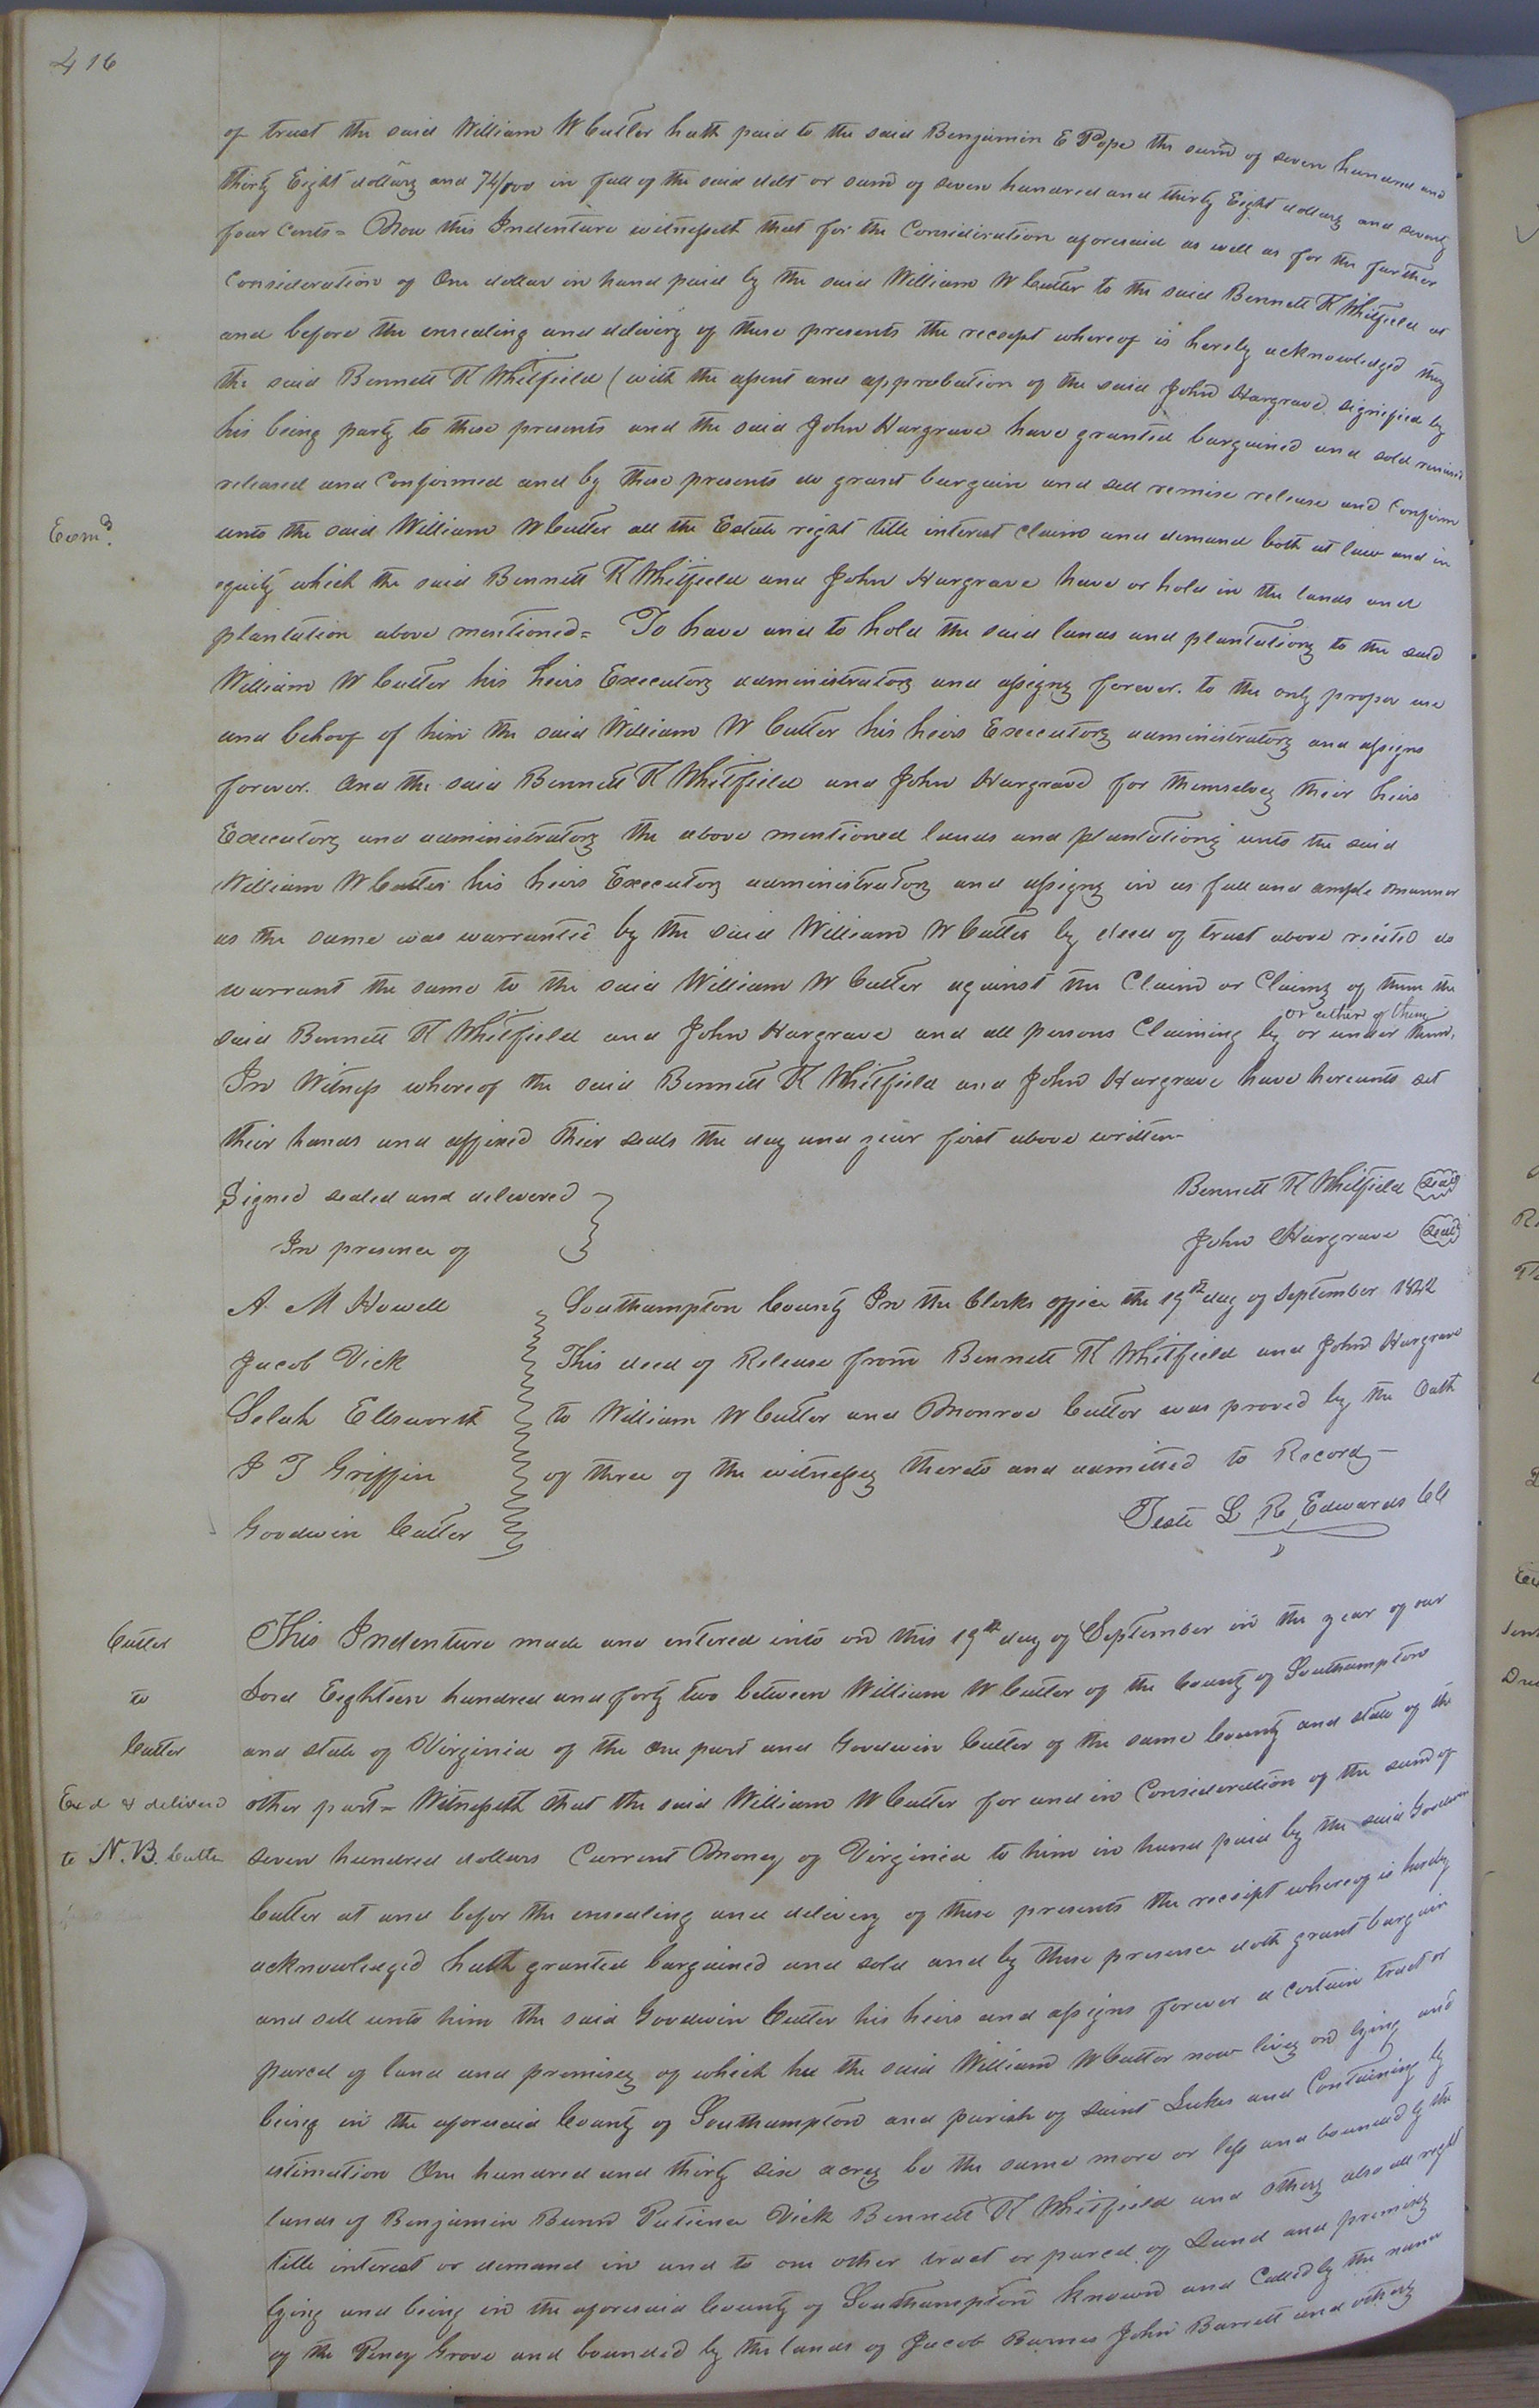 416
of trust the said William W Cutler hath paid to the said Benjamin E Pope the sum of seven hundred and
thirty Eight dollars and 74/100 in full of the said debt or sum of seven hundred and thirty Eight dollars and seventy
four Cents = Now this Indenture witnesseth that for the Consideration aforesaid as well as for the further
Consideration of One dollar in hand paid by the said William W Cutler to the said Bennett K Whitfield at
and before the ensealing and delivery of these presents the receipt whereof is hereby acknowledged they
the said Bennett K Whitfield (with the assent and approbation of the said John Hargrave signified by
his being party to these presents and the said John Hargrave have granted bargained and sold remised
released and Confirmed and by these presents do grant bargain and sell remise release and Confirm
Exmd.
unto the said William W Cutler all the Estate right title interest Claim and demand both at law and in
equity which the said Bennett K Whitfield and John Hargrave have or hold in the lands and
plantation above mentioned = To have and to hold the said lands and plantations to the said
William W Cutler his heirs Executors administrators and assigns forever. to the only proper use
and behoof of him the said William W Cutler his heirs Executors administrators and assigns
forever. And the said Bennett K Whitfield and John Hargrave for themselves their heirs
Executors and administrators the above mentioned lands and plantations unto the said
William W Cutler his heirs Executors administrators and assigns in as full and ample manner
as the same was warranted by the said William W Cutler by deed of trust above recited do
warrant the same to the said William W Cutler against the Claim or Claims of them the
or either of them
said Bennett K Whitfield and John Hargrave and all persons Claiming by or under them.
In Witness whereof the said Bennett K Whitfield and John Hargrave have hereunto set
their hands and affixed their seals the day and year first above written
Signed sealed and delivered
In presence of
Bennett K Whitfield Seal
John Hargrave Seal
A. M Howell
Jacob Vick
Selah Ellsworth
J T Griffin
Goodwin Cutler
Southampton County In the Clerks office the 19th day of September 1842
This deed of Release from Bennett K Whitfield and John Hargrave
to William W Cutler and Monroe Cutler was proved by the Oath
of three of the witnesses thereto and admitted to Record
Teste L R Edwards CC
Cutler
to
Cutler
Exd & deliverd
to N. B. Cutler
This Indenture made and entered into on this 19th day of September in the year of our
Lord Eighteen hundred and forty two between William W Cutler of the County of Southampton
and state of Virginia of the One part and Goodwin Cutler of the same County and state of the
other part = Witnesseth that the said William W Cutler for and in Consideration of the sum of
seven hundred dollars Current Money of Virginia to him in hand paid by the said Goodwin
Cutler at and befor the ensealing and delivery of these presents the receipt whereof is hereby
acknowledged hath granted bargained and sold and by these presence doth grant bargain
and sell unto him the said Goodwin Cutler his heirs and assigns forever a certain tract or
parcel of land and premises of which he the said William W Cutler now lives on lying and
being in the aforesaid County of Southampton and parish of Saint Lukes and Containing by
estimation One hundred and thirty six acres be the same more or less and bounded by the
lands of Benjamin Bunn Patience Vick Bennett K Whitfield and others also all right
title interest or demand in and to one other tract or parcel of Land and premises
lying and being in the aforesaid County of Southampton known and Called by the name
of the Piney Grove and bounded by the lands of Jacob Barnes John Barrett and others